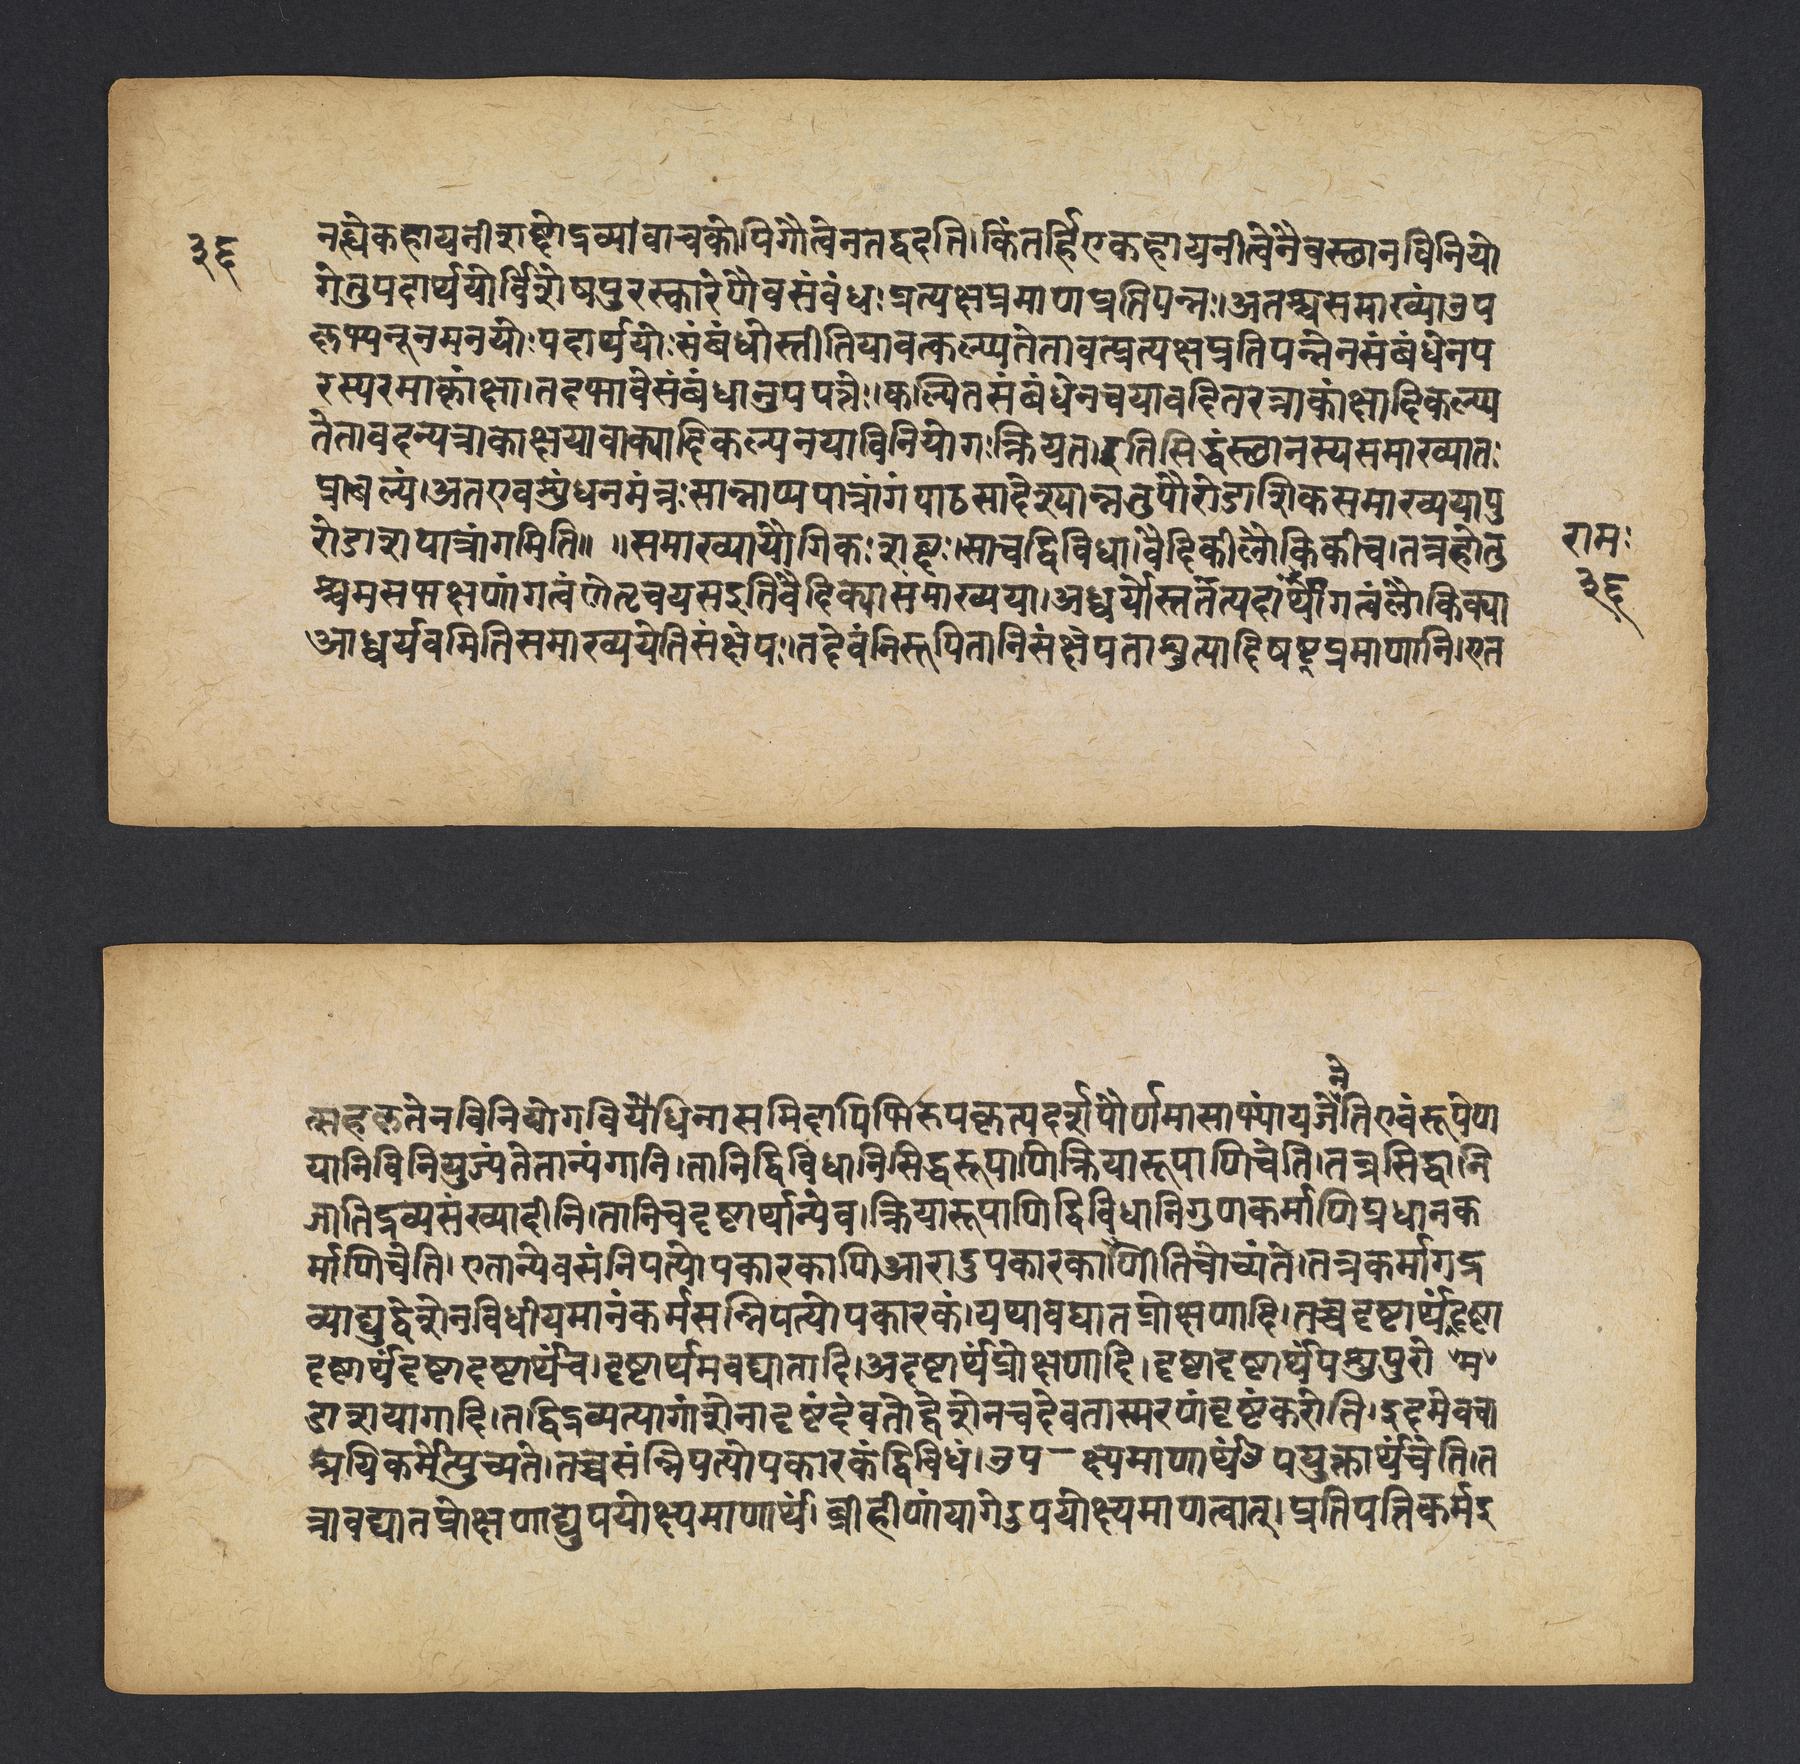 ३६
नह्येकहायनीशब्दोद्रव्यावाचकोपिगौत्वेनतद्वदति।किंतर्हिएकहायनीत्वेनैवस्छानविनियो
गेतुपदार्थयोर्विशेषपुरस्कारेणैवसंबंधःप्रत्यक्षप्रमाणप्रतिपन्नः।अतश्चसमाख्यांउप
लभ्यनूनमनयोःपदार्थयोःसंबंधोस्तीतियावत्कल्प्यतेतावत्प्रत्यक्षप्रतिपन्नेनसंबंधेनप
रस्परमाकांक्षा।तदभावेसंबंधानुपपत्तेः।कल्पितसंबंधेनचयावदितरत्राकांक्षादिकल्प्य
तेतावदन्यत्राकांक्षयावाक्यादिकल्पनयाविनियोगःक्रियतइतिसिद्धंस्छानस्यसमाख्यातः
प्राबल्यं।अतएवशुंधनमंत्रःसान्नाय्यपात्रांगंपाठसादेश्यान्नतुपौरोडाशिकसमाख्ययापु
रोडाशपात्रांगमिति॥ ॥समाख्यायौगिकःशब्दः।साचद्विविधा।वैदिकीलौकिकीच।तत्रहोतु
रामः
३६
श्चमसभक्षणांगत्वंहोतृचमसइतिवैदिक्यासमाख्यया।अध्वर्योस्तत्तत्पदार्थांगत्वंलौकिक्या
आध्वर्यवमितिसमाख्ययेतिसंक्षेपः।तदेवंनिरूपितानिसंक्षेपताश्रुत्यादिषट्प्रमाणानि।एत
ने
त्सहकृतेनविनियोगविधिनासमिदादिभिरुपकृत्यदर्शपौर्णमासाभ्यांयजेतेतिएवंरूपेण
यानिविनियुज्यंतेतान्यंगानि।तानिद्विविधानि।सिद्धरूपाणिक्रियारूपाणिचेति।तत्रसिद्धानि
जातिद्रव्यसंख्यादीनि।तानिचदृष्टार्थान्येव।क्रियारूपाणिद्विविधानिगुणकर्माणिप्रधानक
र्माणिचेति।एतान्येवसंनिपत्योपकारकाणिआरादुपकारकाणीतिचोच्यंते।तत्रकर्मांगद्र
व्याद्युद्देशेनविधीयमानंकर्मसन्निपत्योपकारकं।यथावघातप्रोक्षणादि।तच्चदृष्टार्थंदृष्टा
दृष्टार्थंदृष्टादृष्टार्थंच।दृष्टार्थमवघातादि।अदृष्टार्थंप्रोक्षणादि।दृष्टादृष्टार्थंपशुपुरो
डाशयागादि।तद्धिद्रव्यत्यागांशेनादृष्टंदेवतोद्देशेनचदेवतास्मरणंदृष्टंकरोति।इदमेवचा
श्रयिकर्मेत्युच्यते।तच्चसंन्निपत्योपकारकंद्विविधं।उप—क्ष्यमाणार्थंउपयुक्तार्थंचेति।त
त्रावघातप्रोक्षणाद्युपयोक्ष्यमाणार्थं।व्रीहीणांयागेउपयोक्ष्यमाणत्वात्।प्रतिपत्तिकर्मइ